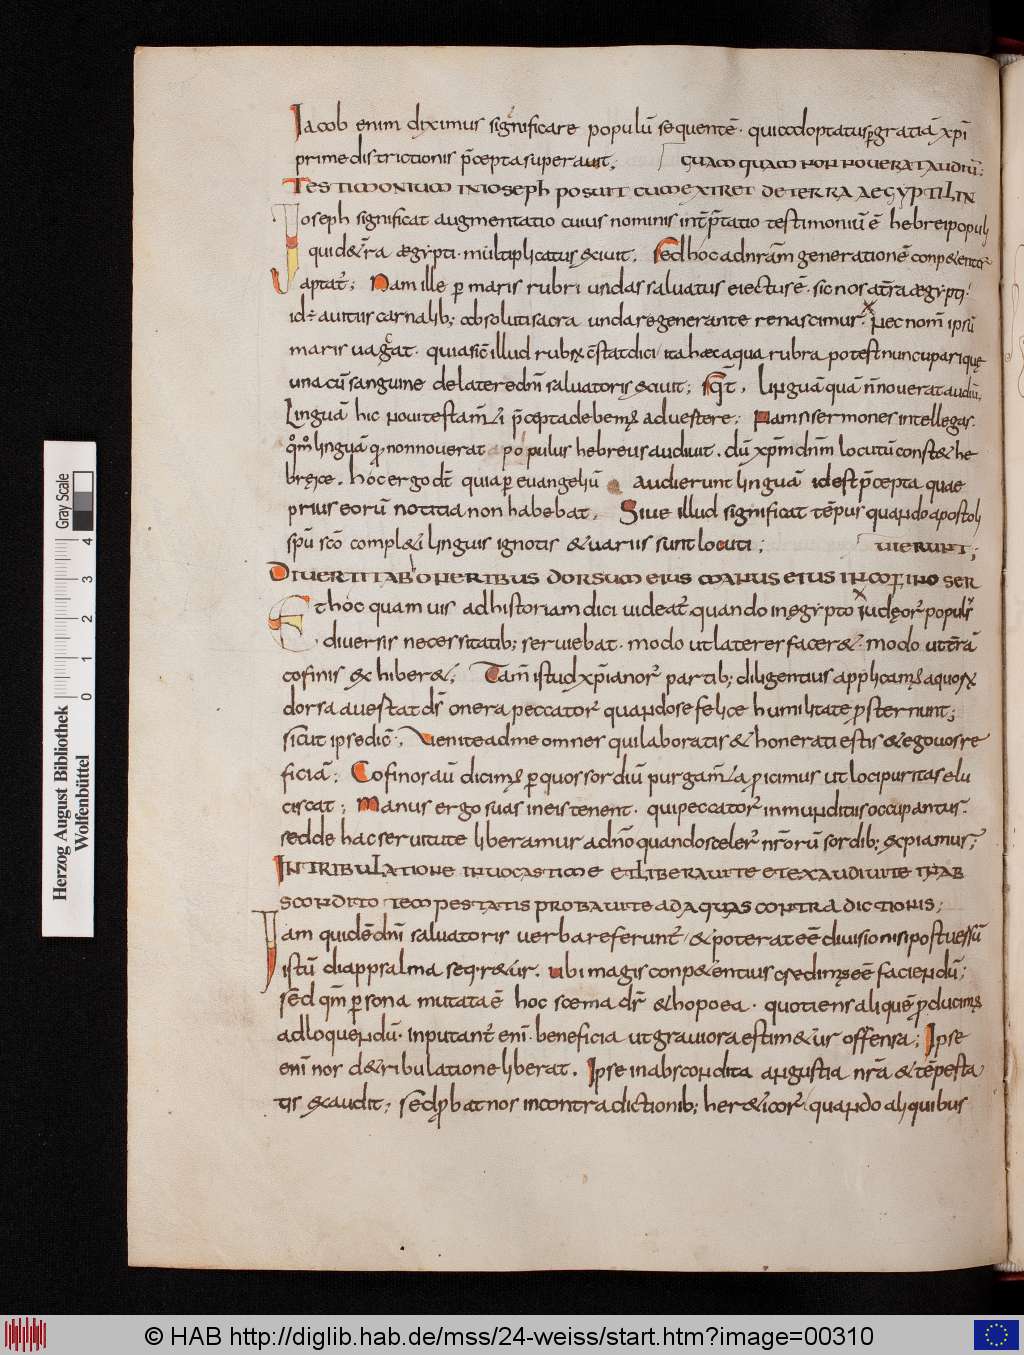 Iacob enim diximus significare populū sequentē. qui adoptatus ꝑ gratiā xp̄i
prime districtionis p̄cepta superauit; quam quam non nouerat audiuit;
Testimonium in ioseph posuit cum exiret de terra aegypti lin
Ioseph significat augmentatio cuius nominis int̄p̄tatio testimoniū ē hebrei populi
qui de t̄ra ægypti. multiplicatus exiuit. Sed hoc ad nr̄am generationē conpetenter
aptat̄; Nam ille per maris rubri undas saluatus eiectus ē. sic nos a t̄ra ægypti.
id ÷ a uitiis carnalib; absoluti sacra unda regenerante renascimur. Nec nom̄ ipsū
maris uagat. quia sic̄ illud rubrū c̄stat dici ita hæc aqua rubra potest nuncupari quę
una cū sanguine de latere dn̄i saluatoris exiuit; Sqt̄. Linguā quā n̄ nouerat audiuit.
Linguā hic noui testam̄ti p̄cepta debem; aduertere; Nam si sermones intellegas.
qm̄ linguā q̨ non nouerat populus hebreus audiuit. dū xp̄m dn̄m locutū constet he
breice. hoc ergo dt̄ quia per euangeliū audierunt linguā id est p̄cepta quae
prius eorū notitia non habebat. Siue illud significat tēpus quando apostoli
sp̄u sc̄o completi linguis ignotis et uariis sunt locuti; uierunt;
Diuertit ab oneribus dorsum eius manus eius in cofino ser
Et hoc quam uis ad historiam dici uideat̄. quando in ęgypto iudęor̄ populus
diuersis necessitatib; seruiebat. modo ut lateres faceret. modo ut t̄rā
cofinis exhiberet; Tam̄ istud xp̄ianor̄ partib; diligentius applicam; a quorū
dorsa auertat ds̄ onera peccator̄ quando se felice humilitate p̱sternunt;
sicut ipse dic̄. Uenite ad me omnes qui laboratis et honerati estis et ego uos re
ficiā; Cofinos aū dicim; per quos sordiū purgam̄ta p̱icimus ut loci puritas elu
ciscat; Manus ergo suas in eis tenent. qui peccator̄ inmunditiis occupantur.
sed de hac seruitute liberamur a dn̄o quando sceler̄ nr̄orū sordib; expiamur;
In tribulatione inuocasti me et liberaui te et exaudiui te in ab
scondito tempestatis probaui te ad aquas contradictionis;
Iam quidē dn̄i saluatoris uerba referunt̄ et poterat eē diuisio nisi post uersū
istū diapsalma seqr̄et̄ur. ubi magis conpetentius credim; eē faciendū;
sed qm̄ persona mutata ē hoc scema dr̄ ethopoea. quotiens aliquē p̱ducim;
ad loquendū. inputant̄ eni. beneficia ut grauiora estimetur offensa; Ipse
eni nos de tribulatione liberat. Ipse in abscondita angustia nr̄a et tēpesta
tis exaudit; sed p̱bat nos in contradictionib; hereticor̄. quando aliquibus
Herzog August Bibliothek
Wolfenbüttel
0 1 2 3 4
Gray Scale
© HAB http://diglib.hab.de/mss/24-weiss/start.htm?image=00310